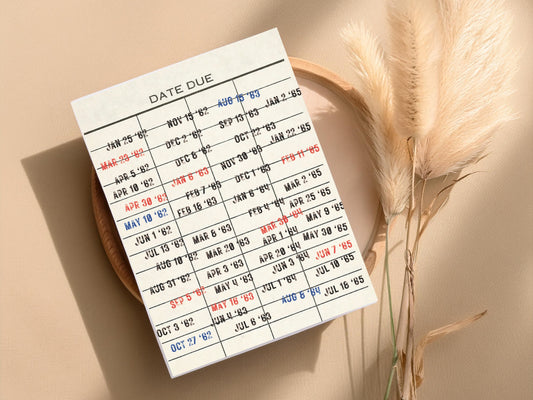 DATE DUE
JAN 25 '62
MAR 23 '62
APR 5 '62
APR 10 '62
APR 30 '62
MAY 10 '62
JUN 1 '62
JUL 13 '62
AUG 10 '62
AUG 31 '62
SEP 5 '62
OCT 3 '62
OCT 27 '62
NOV 15 '62
DEC 2 '62
DEC 8 '62
JAN 6 '63
FEB 7 '63
FEB 16 '63
MAR 5 '63
MAR 20 '63
APR 3 '63
MAY 4 '63
MAY 16 '63
JUN 4 '63
JUL 6 '63
AUG 15 '63
SEP 13 '63
OCT 22 '63
NOV 30 '63
JAN 6 '64
FEB 4 '64
MAR 30 '64
APR 1 '64
APR 20 '64
JUN 3 '64
JUL 1 '64
AUG 8 '64
JAN 2 '65
JAN 22 '65
FEB 11 '65
MAR 2 '65
APR 25 '65
MAY 9 '65
MAY 30 '65
JUN 7 '65
JUL 10 '65
JUL 16 '65